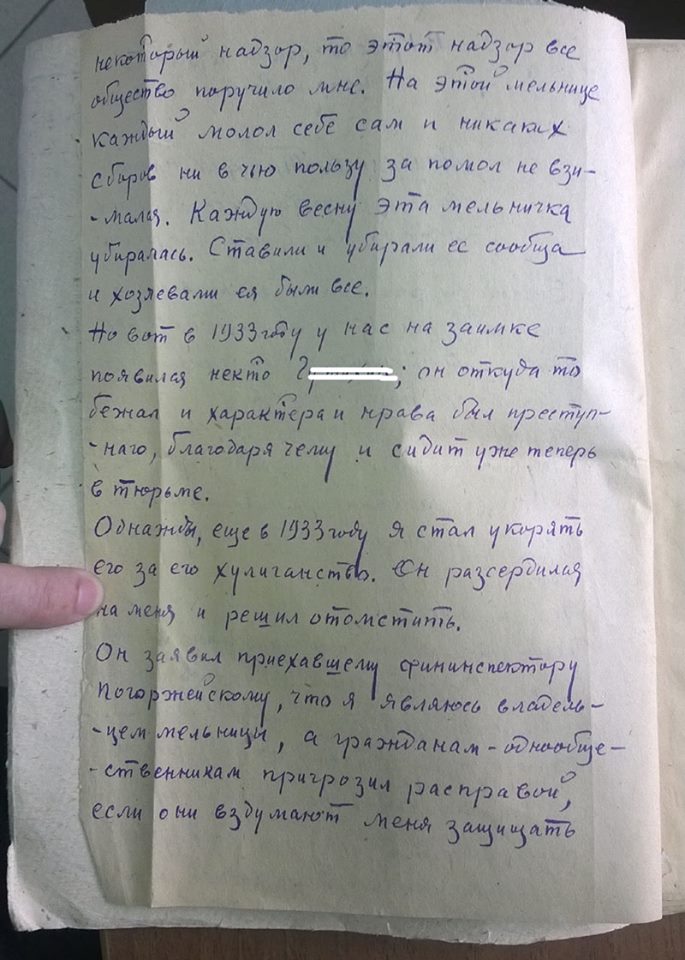 некоторый надзор, то этот надзор все
общество поручило мне. На этой мельнице
каждый молол себе сам и никаких
сборов ни в чью пользу за помол не взи-
-мался. Каждую весну эта мельничка
убиралась. Ставили и убирали ее сообща
и хозяевами ея были все.
Но вот в 1933 году у нас на заимке
появился некто он откуда то
бежал и характера и нрава был преступ-
-наго, благодаря чему и сидит уже теперь
в тюрьме.
Однажды, еще в 1933 году я стал укорять
его за его хулиганство. Он разсердился
на меня и решил отомстить.
Он заявил приехавшему фининспектору
Погоржейскому, что я являюсь владель-
-цем мельницы, а гражданам-однообще-
-ственникам пригрозил расправой,
если они вздумают меня защищать